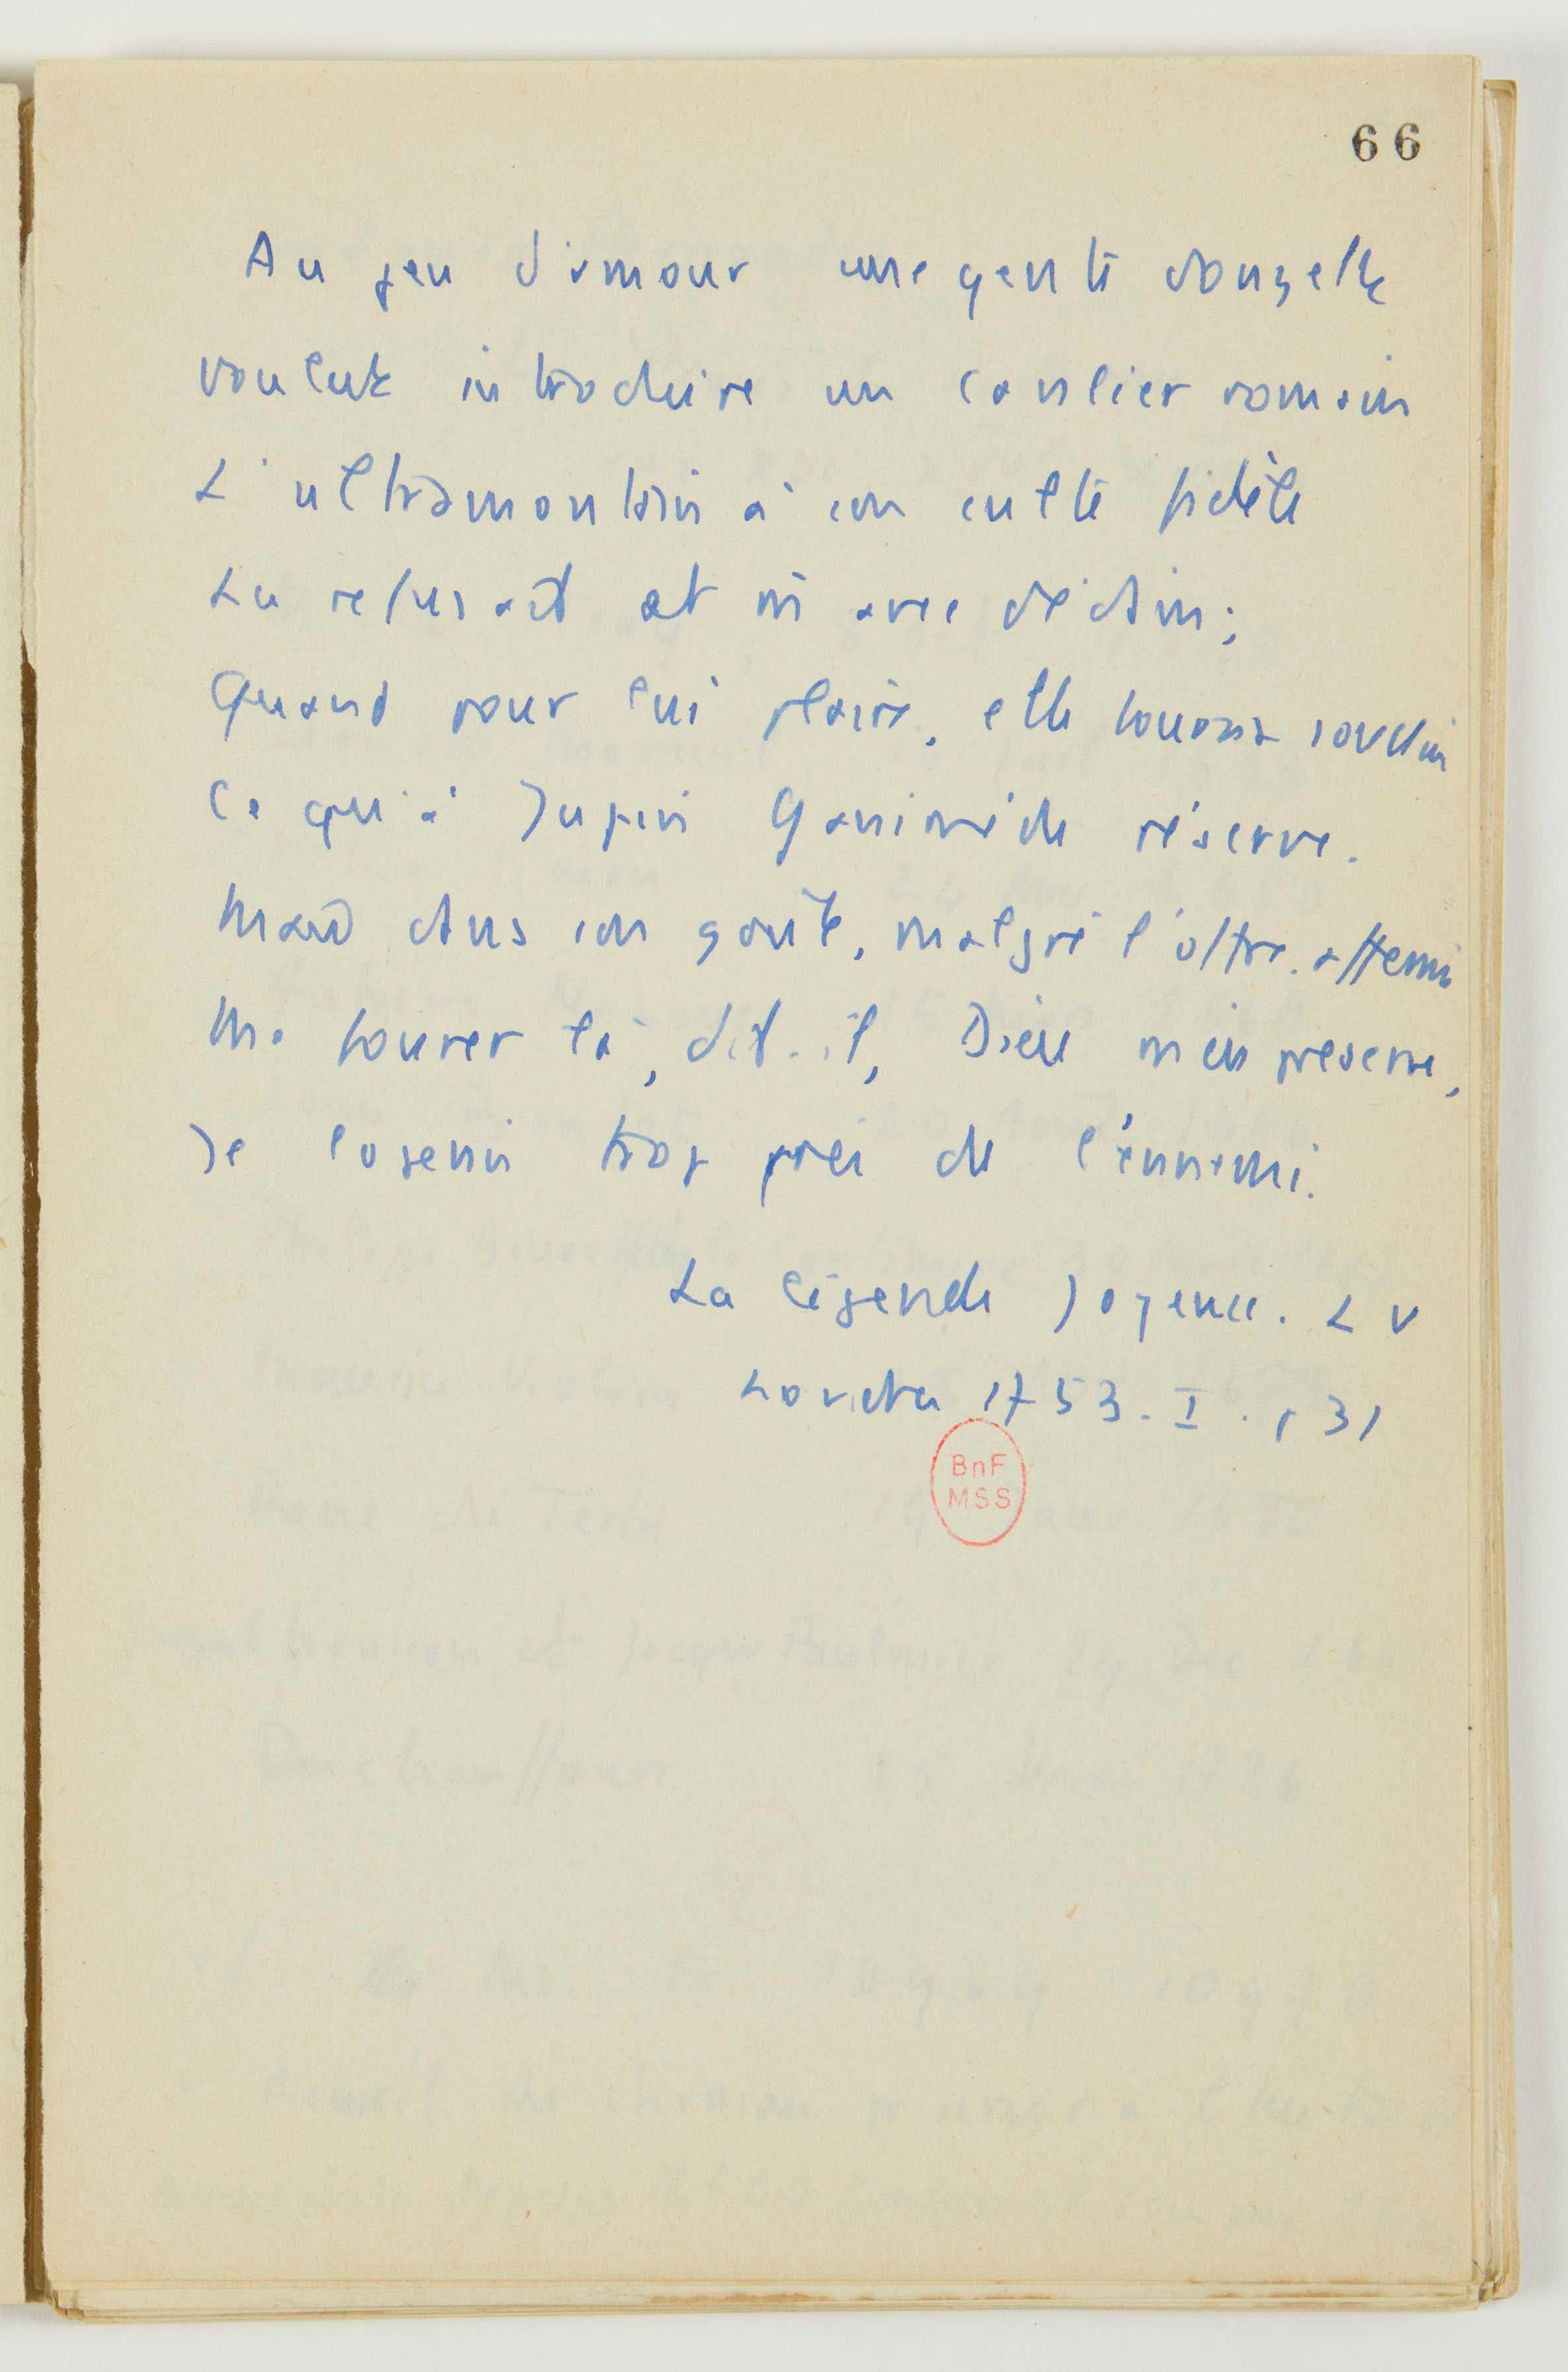 66
Au jeu d'amour une gente donzelle
voulut introduire un cavalier romain
L'ultramontain à son culte fidèle
La refusait et ni avec dédain;
Quand pour lui plaire, elle tourna soudin
Ce qu'à Jupin Ganimède réserve.
Mais dans son goût, malgré l'offre, affermi
Me fourrer là, dit-il, Dieu m'en preserve,
Je logerais trop près de l'ennemi.
La légende joyeuse. LV
Londres 1753. I. 131
BnF
MSS